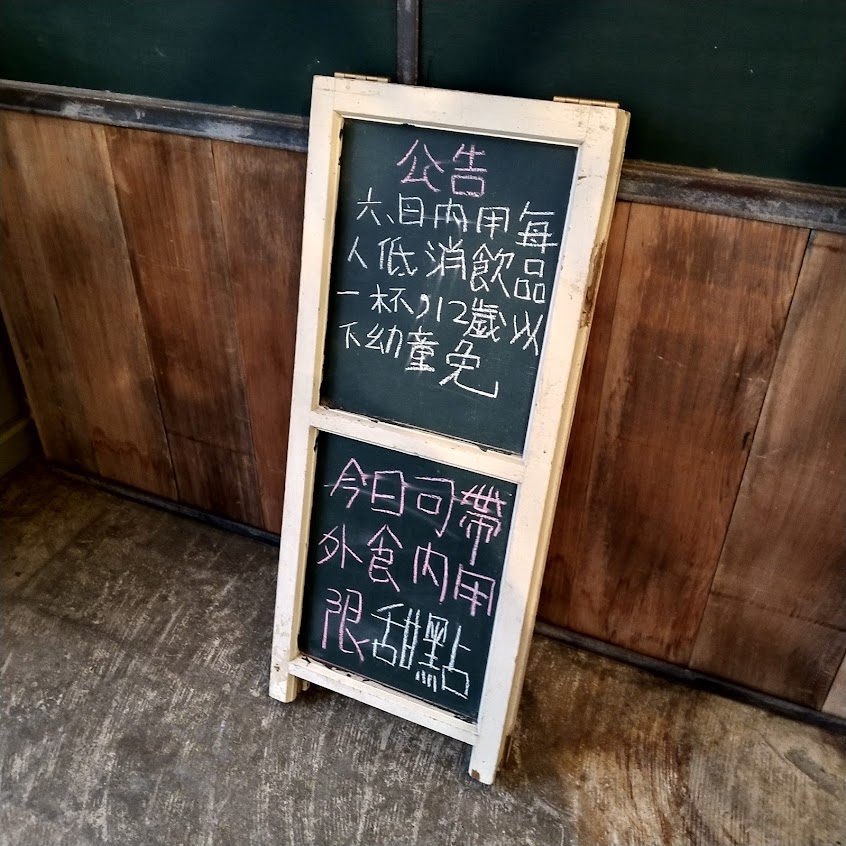 公告
六、日內用每
人低消飲品
一杯,12歲以
下幼童免
今日可帶
外食內用
限甜點